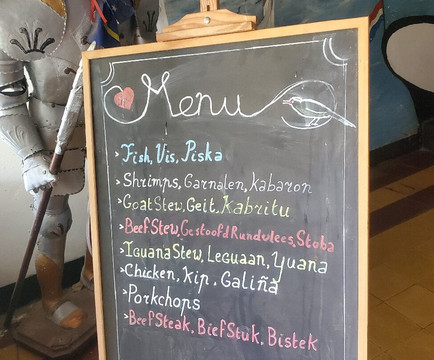 Menu
>Fish, Vis, Piska
>Shrimps, Garnalen, Kabaron
>Goat Stew, Geit, Kabritu
>Beef Stew, Gestoofd Rundvlees, Stoba
>Iguana Stew, Leguaan, Yuana
>Chicken, Kip, Galiña
>Porkchops
>Beef Steak, Bief Stuk, Bistek